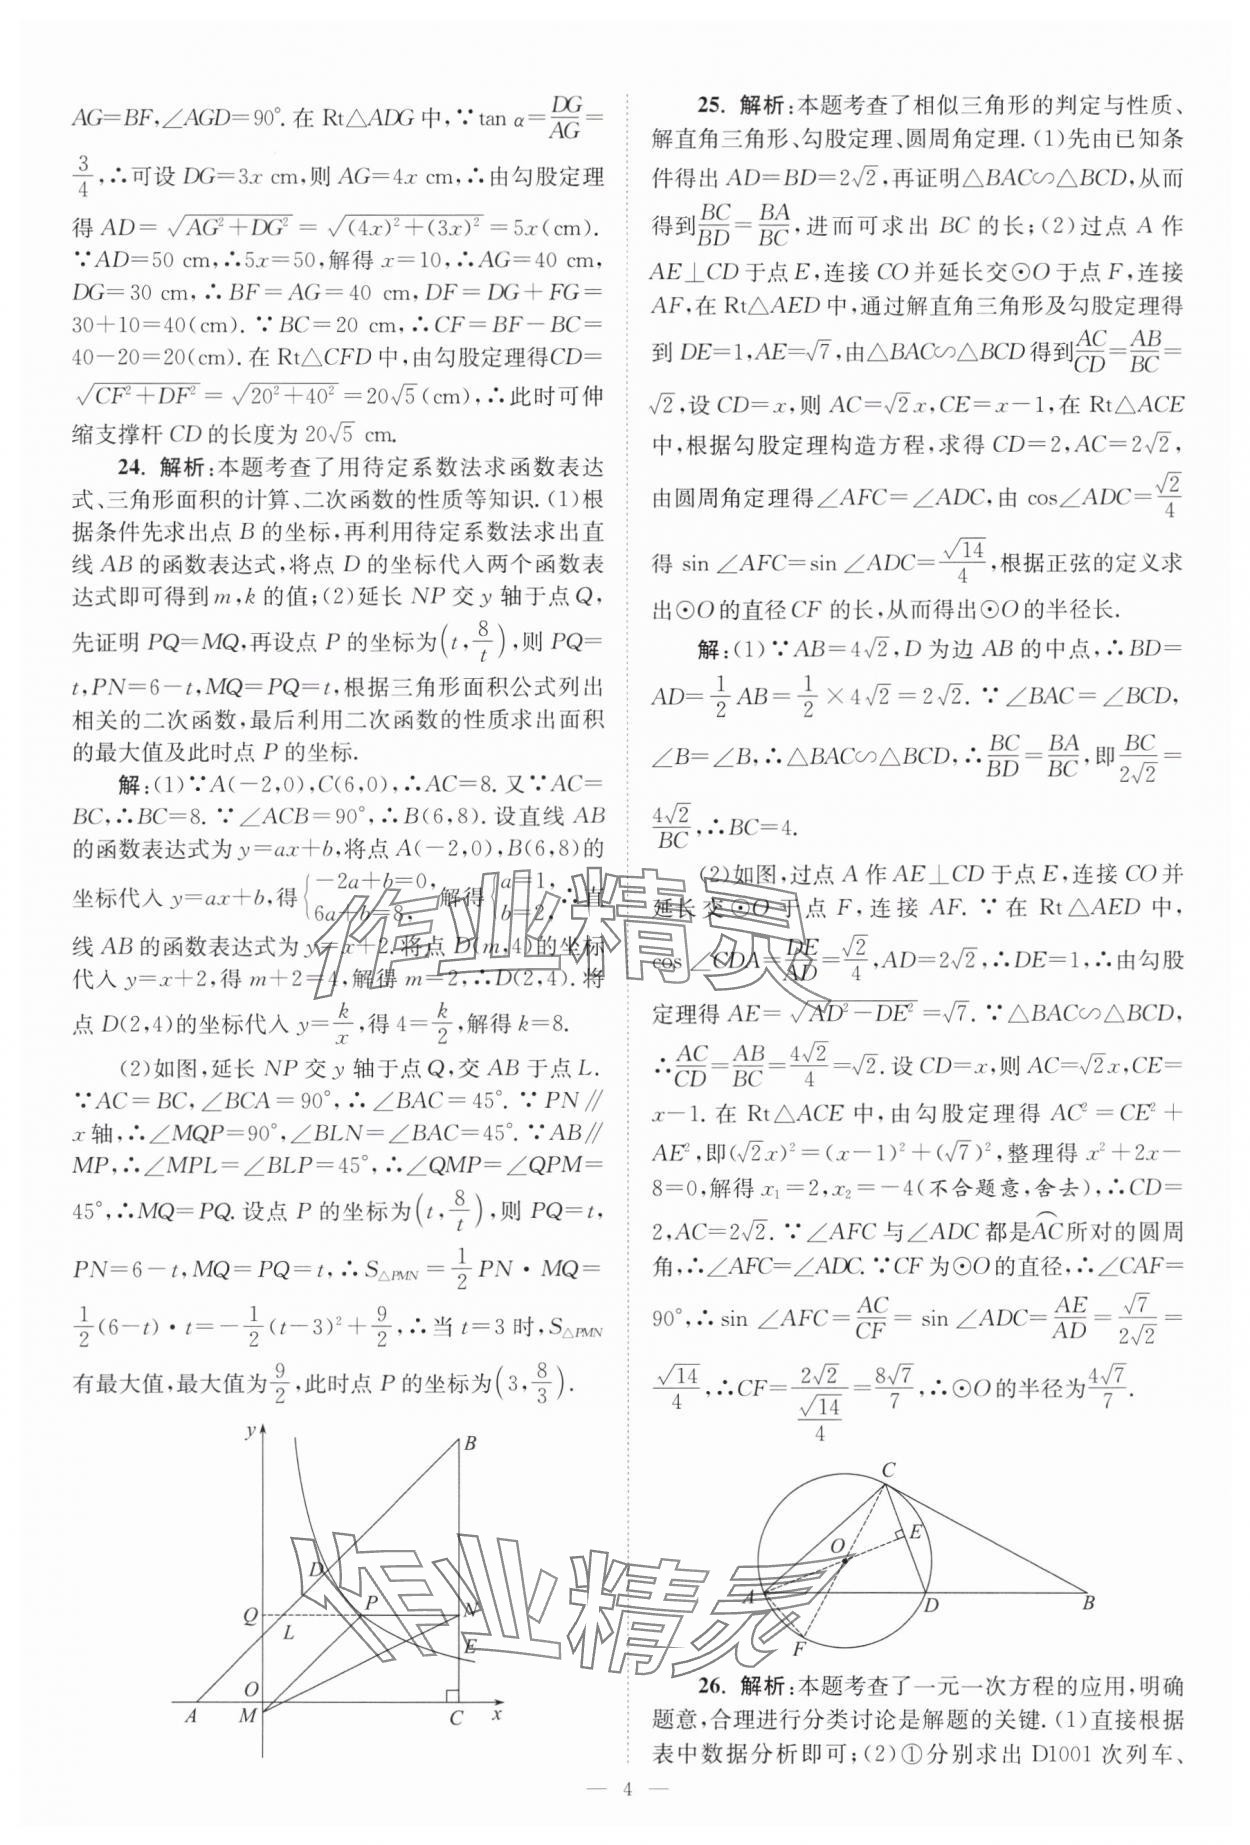 AG=BF,∠AGD=90°.在 Rt△ADG 中,∵tan α=DG/AG=
3/4,∴可设 DG=3x cm,则 AG=4x cm,∴由勾股定理
得 AD=√(AG²+DG²)=√((4x)²+(3x)²)=5x(cm).
∵AD=50 cm,∴5x=50,解得 x=10,∴AG=40 cm,
DG=30 cm,∴BF=AG=40 cm,DF=DG+FG=
30+10=40(cm).∵BC=20 cm,∴CF=BF-BC=
40-20=20(cm).在 Rt△CFD 中,由勾股定理得CD=
√(CF²+DF²)=√(20²+40²)=20√5(cm),∴此时可伸
缩支撑杆 CD 的长度为 20√5 cm.
24. 解析:本题考查了用待定系数法求函数表达
式、三角形面积的计算、二次函数的性质等知识.(1)根
据条件先求出点 B 的坐标,再利用待定系数法求出直
线 AB 的函数表达式,将点 D 的坐标代入两个函数表
达式即可得到 m,k 的值;(2)延长 NP 交 y 轴于点 Q,
先证明 PQ=MQ,再设点 P 的坐标为(t,8/t),则 PQ=
t,PN=6-t,MQ=PQ=t,根据三角形面积公式列出
相关的二次函数,最后利用二次函数的性质求出面积
的最大值及此时点 P 的坐标.
解:(1)∵A(-2,0),C(6,0),∴AC=8.又∵AC=
BC,∴BC=8.∵∠ACB=90°,∴B(6,8).设直线 AB
的函数表达式为 y=ax+b,将点 A(-2,0),B(6,8)的
坐标代入 y=ax+b,得{-2a+b=0, 6a+b=8,解得{a=1, b=2,∴直
线 AB 的函数表达式为 y=x+2.将点 D(m,4)的坐标
代入 y=x+2,得 m+2=4,解得 m=2,∴D(2,4).将
点 D(2,4)的坐标代入 y=k/x,得 4=k/2,解得 k=8.
(2)如图,延长 NP 交 y 轴于点 Q,交 AB 于点 L.
∵AC=BC,∠BCA=90°,∴∠BAC=45°.∵PN∥
x 轴,∴∠MQP=90°,∠BLN=∠BAC=45°.∵AB∥
MP,∴∠MPL=∠BLP=45°,∴∠QMP=∠QPM=
45°,∴MQ=PQ.设点 P 的坐标为(t,8/t),则 PQ=t,
PN=6-t,MQ=PQ=t,∴S△PMN=1/2 PN·MQ=
1/2(6-t)·t=-1/2(t-3)²+9/2,∴当 t=3 时,S△PMN
有最大值,最大值为9/2,此时点 P 的坐标为(3,8/3).
y
B
D
Q
P
N
L
E
O
A
M
C
x
25. 解析:本题考查了相似三角形的判定与性质、
解直角三角形、勾股定理、圆周角定理.(1)先由已知条
件得出 AD=BD=2√2,再证明△BAC∽△BCD,从而
得到BC/BD=BA/BC,进而可求出 BC 的长;(2)过点 A 作
AE⊥CD 于点 E,连接 CO 并延长交⊙O 于点 F,连接
AF,在 Rt△AED 中,通过解直角三角形及勾股定理得
到 DE=1,AE=√7,由△BAC∽△BCD 得到AC/CD=AB/BC=
√2,设 CD=x,则 AC=√2x,CE=x-1,在 Rt△ACE
中,根据勾股定理构造方程,求得 CD=2,AC=2√2,
由圆周角定理得∠AFC=∠ADC,由 cos∠ADC=√2/4
得 sin∠AFC=sin∠ADC=√14/4,根据正弦的定义求
出⊙O 的直径 CF 的长,从而得出⊙O 的半径长.
解:(1)∵AB=4√2,D 为边 AB 的中点,∴BD=
AD=1/2 AB=1/2×4√2=2√2.∵∠BAC=∠BCD,
∠B=∠B,∴△BAC∽△BCD,∴BC/BD=BA/BC,即BC/2√2=
4√2/BC,∴BC=4.
(2)如图,过点 A 作 AE⊥CD 于点 E,连接 CO 并
延长交⊙O 于点 F,连接 AF.∵在 Rt△AED 中,
cos∠CDA=DE/AD=√2/4,AD=2√2,∴DE=1,∴由勾股
定理得 AE=√(AD²-DE²)=√7.∵△BAC∽△BCD,
∴AC/CD=AB/BC=4√2/4=√2.设 CD=x,则 AC=√2x,CE=
x-1.在 Rt△ACE 中,由勾股定理得 AC²=CE²+
AE²,即(√2x)²=(x-1)²+(√7)²,整理得 x²+2x-
8=0,解得 x₁=2,x₂=-4(不合题意,舍去),∴CD=
2,AC=2√2.∵∠AFC 与∠ADC 都是A͡C所对的圆周
角,∴∠AFC=∠ADC.∵CF 为⊙O 的直径,∴∠CAF=
90°,∴sin∠AFC=AC/CF=sin∠ADC=AE/AD=√7/2√2=
√14/4,∴CF=2√2/(√14/4)=8√7/7,∴⊙O 的半径为4√7/7.
C
E
O
A
D
B
F
26. 解析:本题考查了一元一次方程的应用,明确
题意,合理进行分类讨论是解题的关键.(1)直接根据
表中数据分析即可;(2)①分别求出 D1001 次列车、
— 4 —
作业精灵
作业精灵